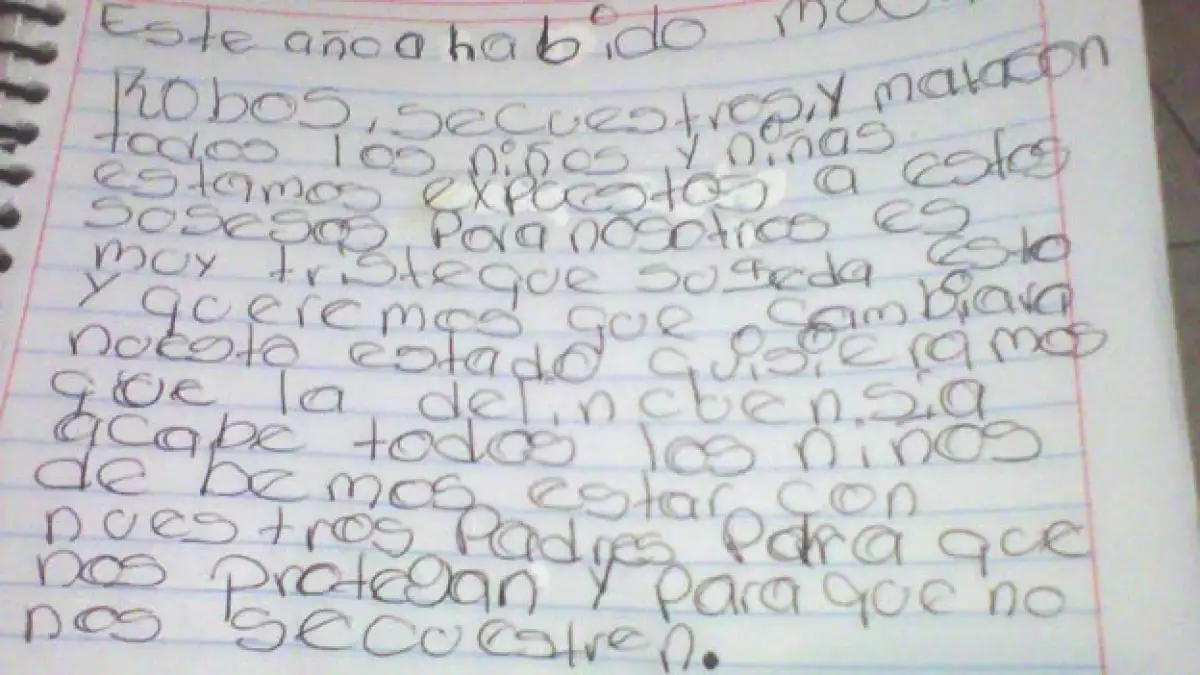 Este año a habido
Robos, secuestros, y matacon
todos los niños y niñas
estamos expuestos a estos
sosesos, Para nosotros es
muy triste que suseda esto
y queremos que cambiara
nuesto estado quisieramos
que la delincuensia
acabe todos los ninos
de bemos estar con
nuestros Padres Para que
nos Protegan y Para que no
nos secuestren.